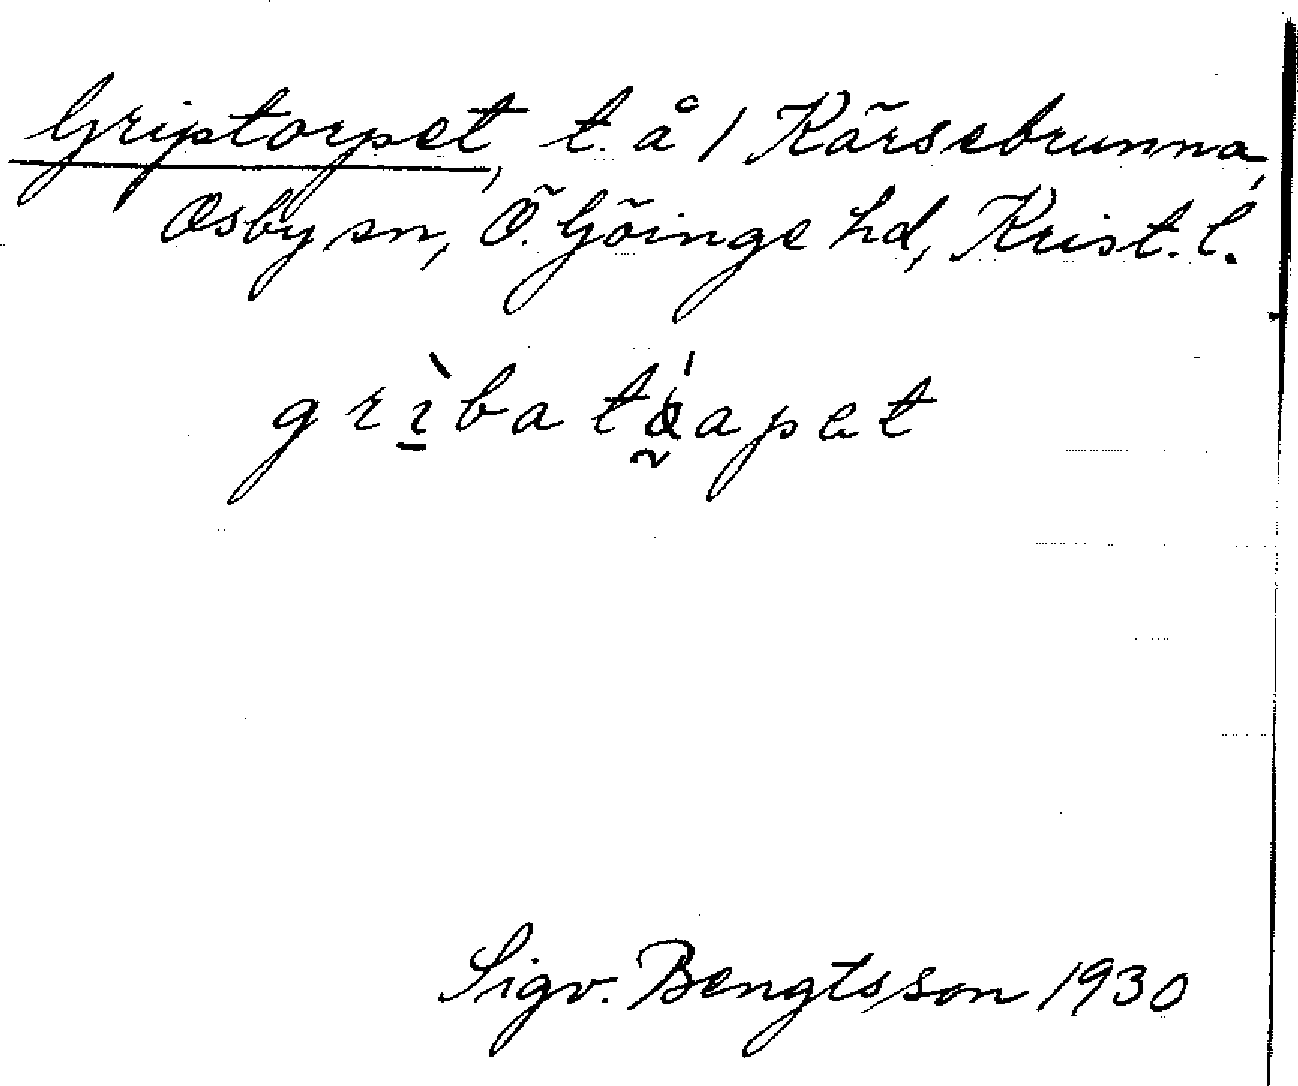 Griptorpet, t. å 1 Kärsebrunna,
Osby sn, Ö. Göinge hd, Krist. l.
grìbatáapet
Sigv. Bengtsson 1930